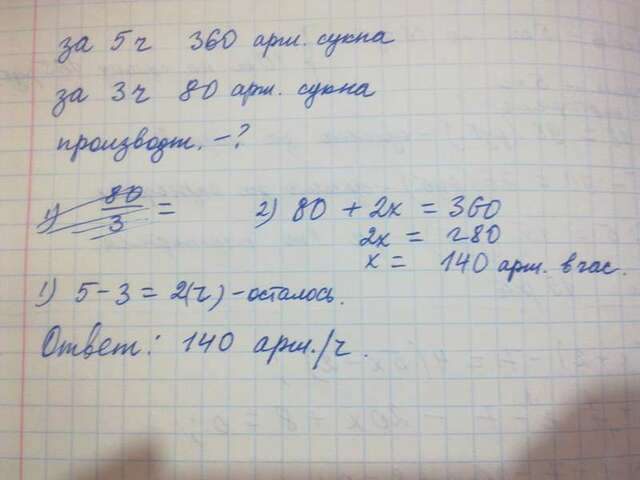 за 5ч 360 арш. сукна
за 3ч 80 арш. сукна
производт. -?
1) 80/3 =
2) 80 + 2x = 360
2x = 280
x = 140 арш. в час.
1) 5 - 3 = 2(ч) - осталось.
Ответ: 140 арш./ч.